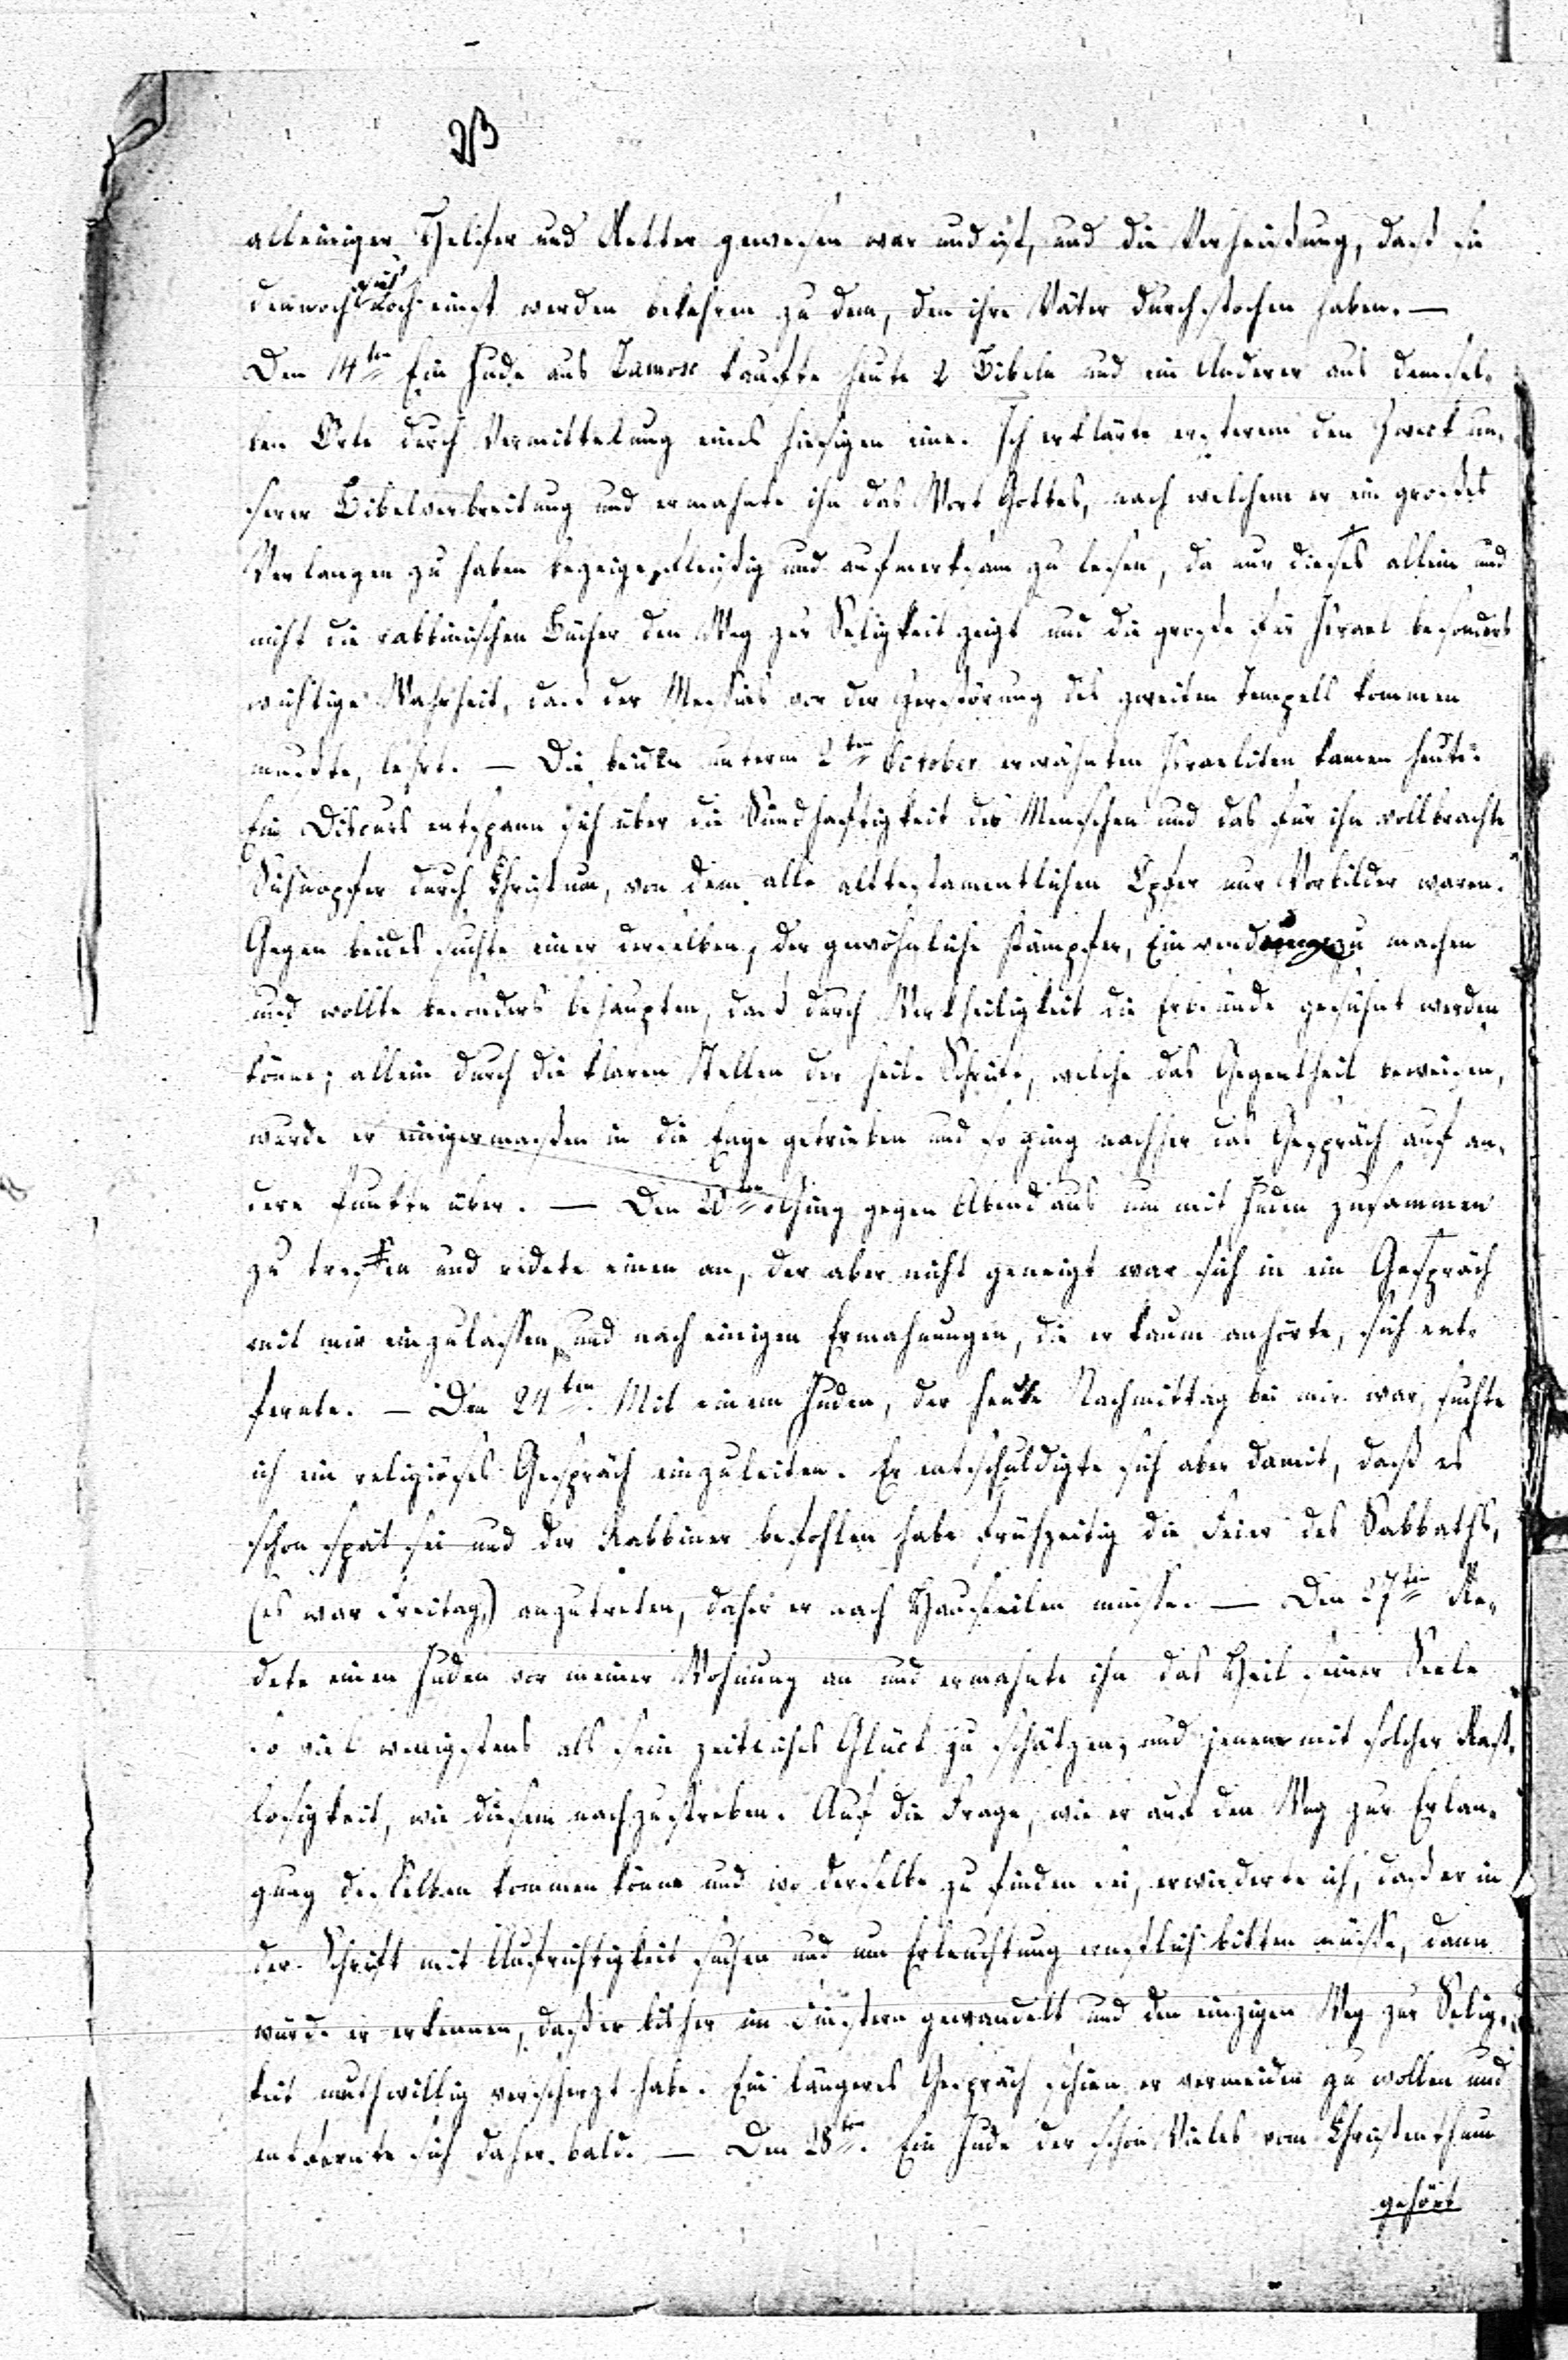 alleiniger Helfer und Retter gewesen war und ist, und die Verheißung, daß sie
dennoch sich noch einst werden bekehren zu dem, den ihre Väter durchstochen haben. —
Den 14ten Ein Jude aus Zamosc kaufte heute 2 Bibeln und ein Anderer aus demsel-
ben Orte durch Vermittelung eines hiesigen eine. Ich erklärte ersterem den Zweck un-
serer Bibelverbreitung und ermahnte ihn das Wort Gottes, nach welchem er ein großes
Verlangen zu haben bezeigte, fleißig und aufmerksam zu lesen, da nur dieses allein und
nicht die rabbinischen Bücher den Weg zur Seligkeit zeigt und die große für Israel besonders
wichtige Wahrheit, daß der Messias vor der Zerstörung des zweiten Tempels kommen
mußte, lehrt. — Die beiden unterm 2ten October erwähnten Israeliten kamen heute.
Ein Discurs entspann sich über die Sündhaftigkeit des Menschen und das für ihn vollbrachte
Sühnopfer durch Christum, von dem alle alttestamentlichen Opfer nur Vorbilder waren.
Gegen beides suchte einer derselben, der gewöhnliche Kämpfer, Einwendunge zu machen
und wollte besonders behaupten, daß durch Werkheiligkeit die Erbsünde gesühnt werden
könne; allein durch die klaren Stellen der heil. Schrift, welche das Gegentheil beweisen,
wurde er einigermaßen in die Enge getrieben und so ging nachher das Gespräch auf an-
dere Punkte über. — Den ging gegen Abend aus um mit Juden zusammen
zu treffen und redete einen an, der aber nicht geneigt war sich in ein Gespräch
mit mir einzulassen, und nach einigen Ermahnungen, die er kaum anhörte, sich ent-
fernte. — Den 24ten. Mit einem Juden, der heute Nachmittag bei mir war, suchte
ich ein religiöses Gespräch einzuleiten. Er entschuldigte sich aber damit, daß es
schon spät sei und der Rabbiner befohlen habe frühzeitig die Feier des Sabbaths,
(es war Freitag,) anzutreten, daher er nach Hause eilen müsse. — Den 27ten Re-
dete einen Juden vor meiner Wohnung an und ermahnte ihn das Heil seiner Seele
so viel wenigstens als sein zeitliches Glück zu schätzen, und jenem mit solcher Rast-
losigkeit, wie diesem nachzustreben. Auf die Frage, wie er auf den Weg zur Erlan-
gung desselben kommen könne und wo derselbe zu finden sei, erwiederte ich, daß er in
der Schrift mit Aufrichtigkeit suchen und um Erleuchtung ernstlich bitten müsse, dann
würde er erkennen, daß er bisher im Finstern gewandelt und den einzigen Weg zur Selig-
keit muthwillig verscherzt habe. Ein längeres Gespräch schien er vermeiden zu wollen und
entfernte sich daher bald. — Den 28ten. Ein Jude der schon Vieles vom Christenthum
gehört